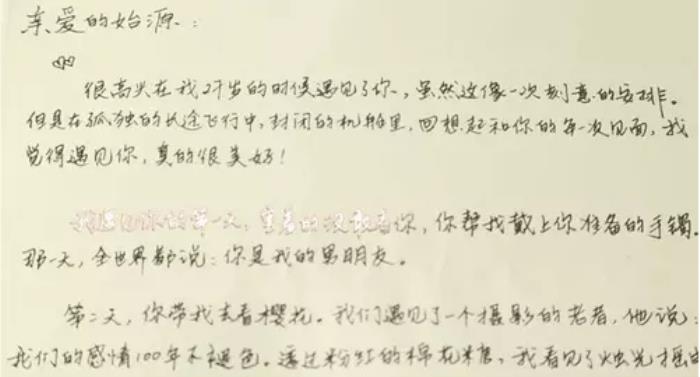 亲爱的始源：
很高兴在我27岁的时候遇见了你，虽然这像一次刻意的安排。
但是在孤独的长途飞行中，封闭的机舱里，回想起和你的每一次见面，我
觉得遇见你，真的很美好！
我遇见你的第一天，害羞的没敢看你，你帮我戴上你准备的手镯。
那一天，全世界都说：你是我的男朋友。
第二天，你带我去看樱花。我们遇见了一个摄影的老者，他说：
我们的感情100年不褪色。透过粉红的棉花糖，我看见了烛光摇曳